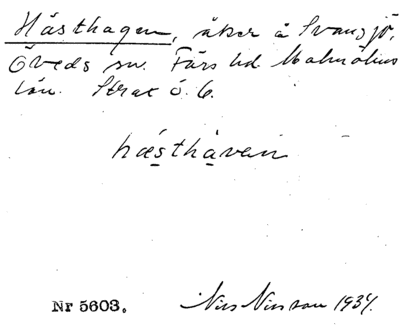 Hästhagen, åker å Svansjö,
Öveds sn. Färs hd. Malmöhus
län. Strax ö. 6.
hästhavein
Nr 5603. Nils Nilsson 1934.